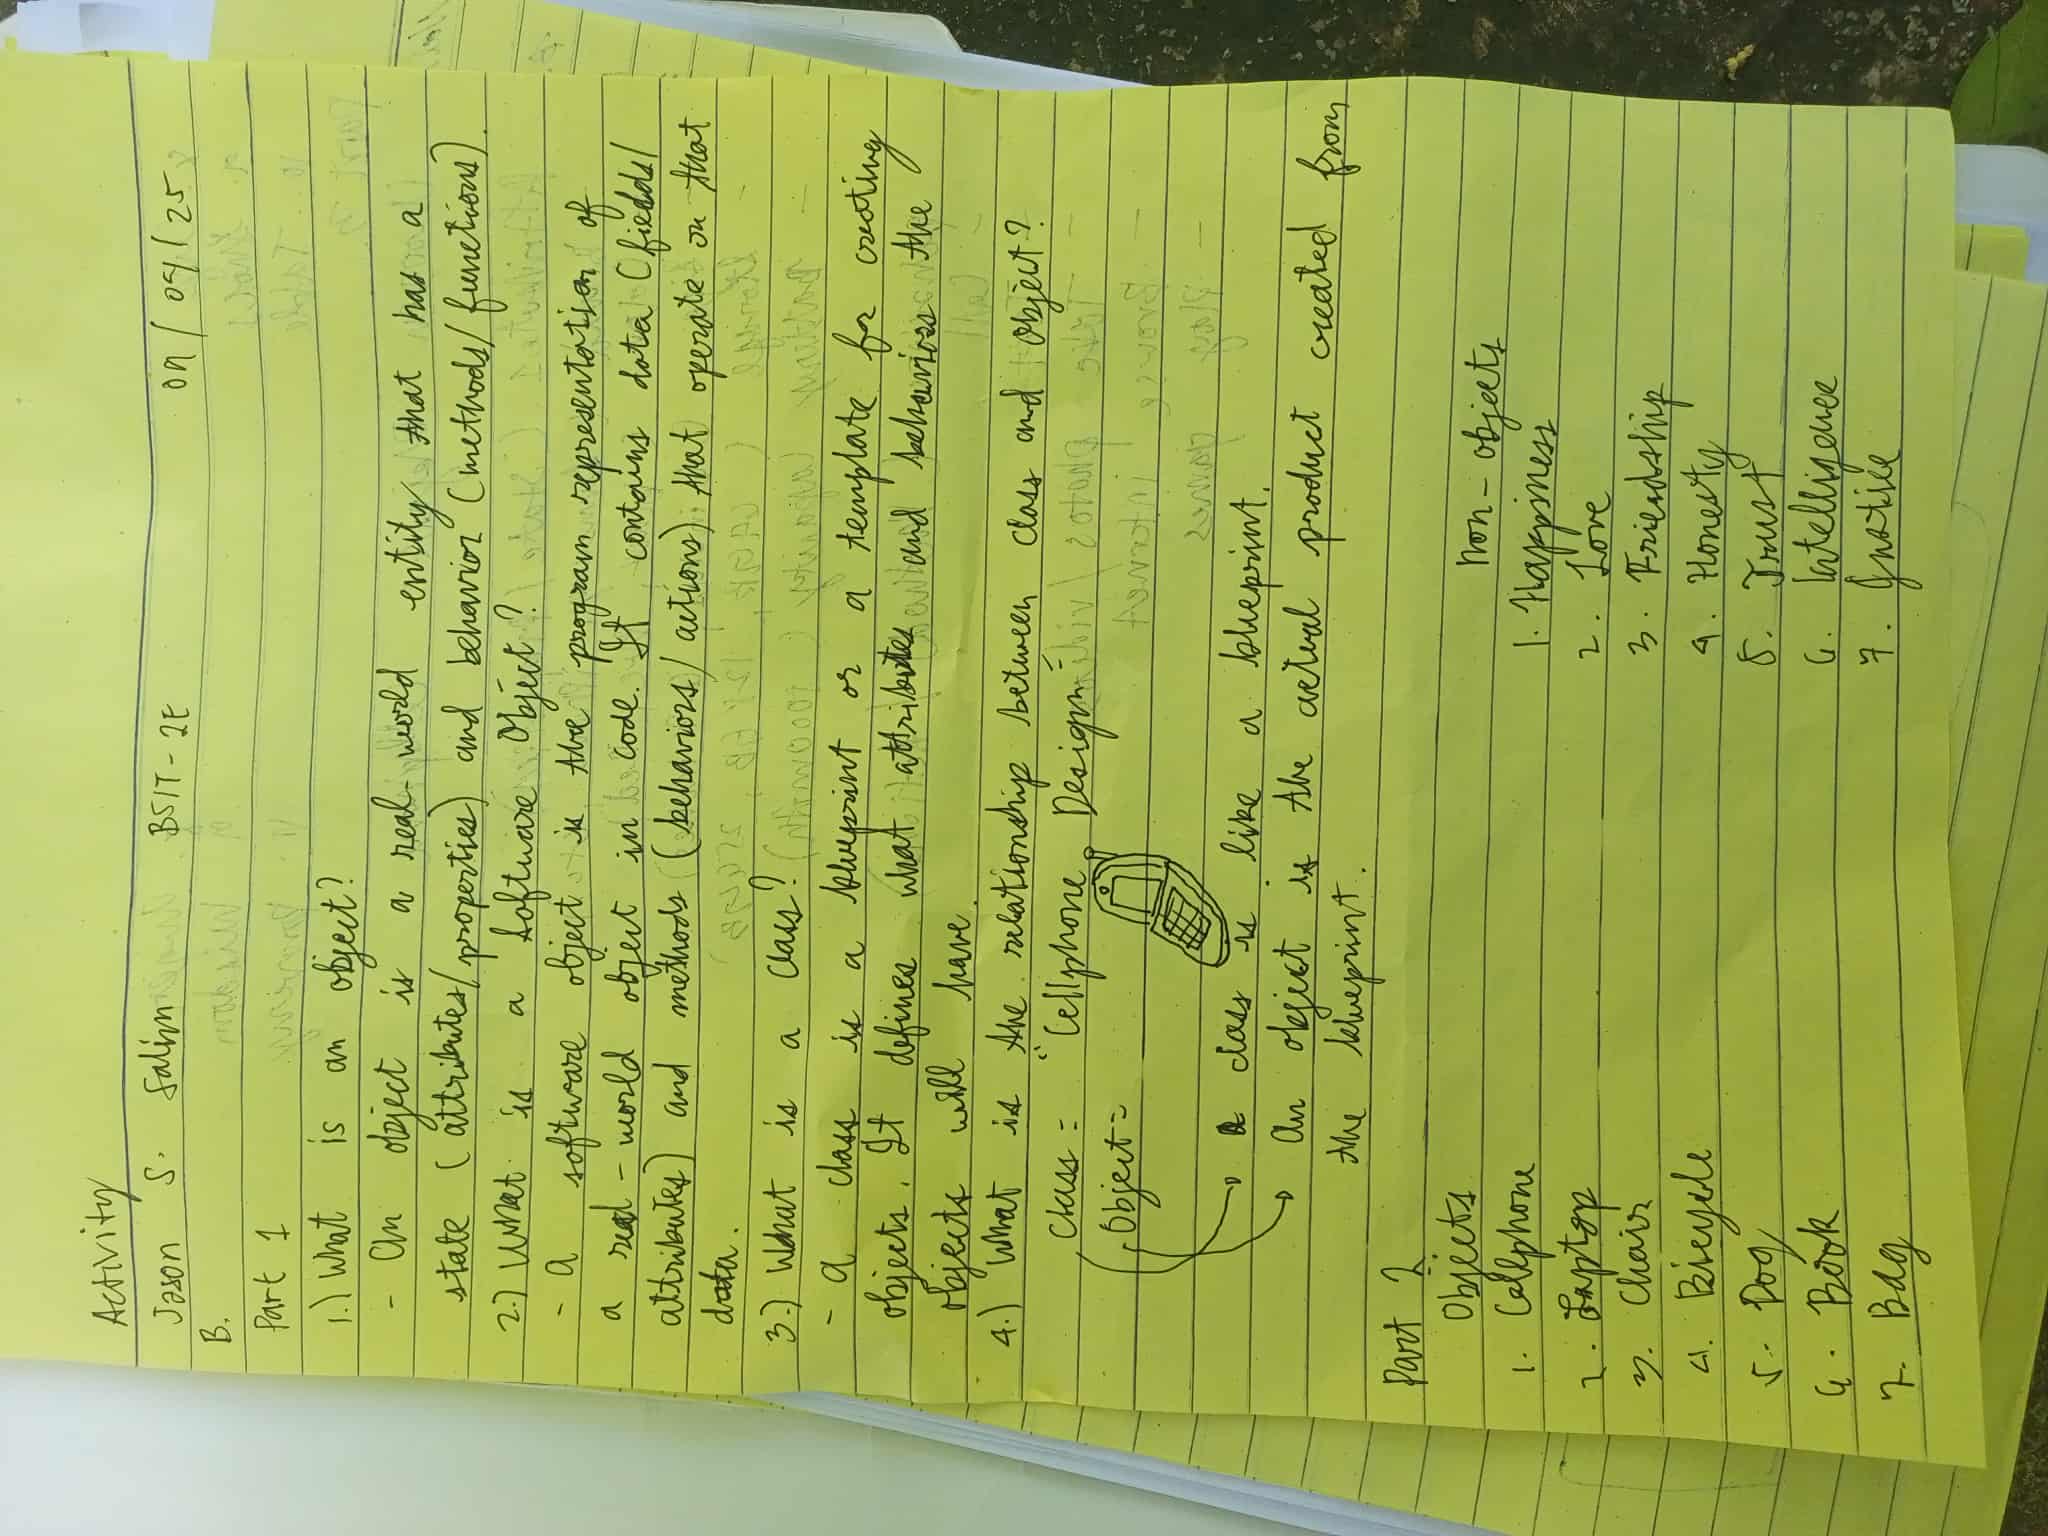 Activity
Jason S. Salim BSIT-2E 09/25
B.
Part 1
1.) What is an object?
- An object is a real-world entity that has a
state (attributes/properties) and behavior (methods/functions).
2.) What is a Software Object?
- A software object is the program representation of
a real-world object in code. It contains data (fields/
attributes) and methods (behaviors/actions) that operate on that
data.
3.) What is a class?
- A class is a blueprint or a template for creating
objects. It defines what attributes and behaviors the
objects will have.
4.) What is the relationship between class and object?
Class = "Cellphone Design"
Object =
A class is like a blueprint.
An object is the actual product created from
the blueprint.
Part 2
Objects Non-objects
1. Cellphone 1. Happiness
2. Laptop 2. Love
3. Chair 3. Friendship
4. Bicycle 4. Honesty
5. Dog 5. Trust
6. Book 6. Intelligence
7. Bag 7.